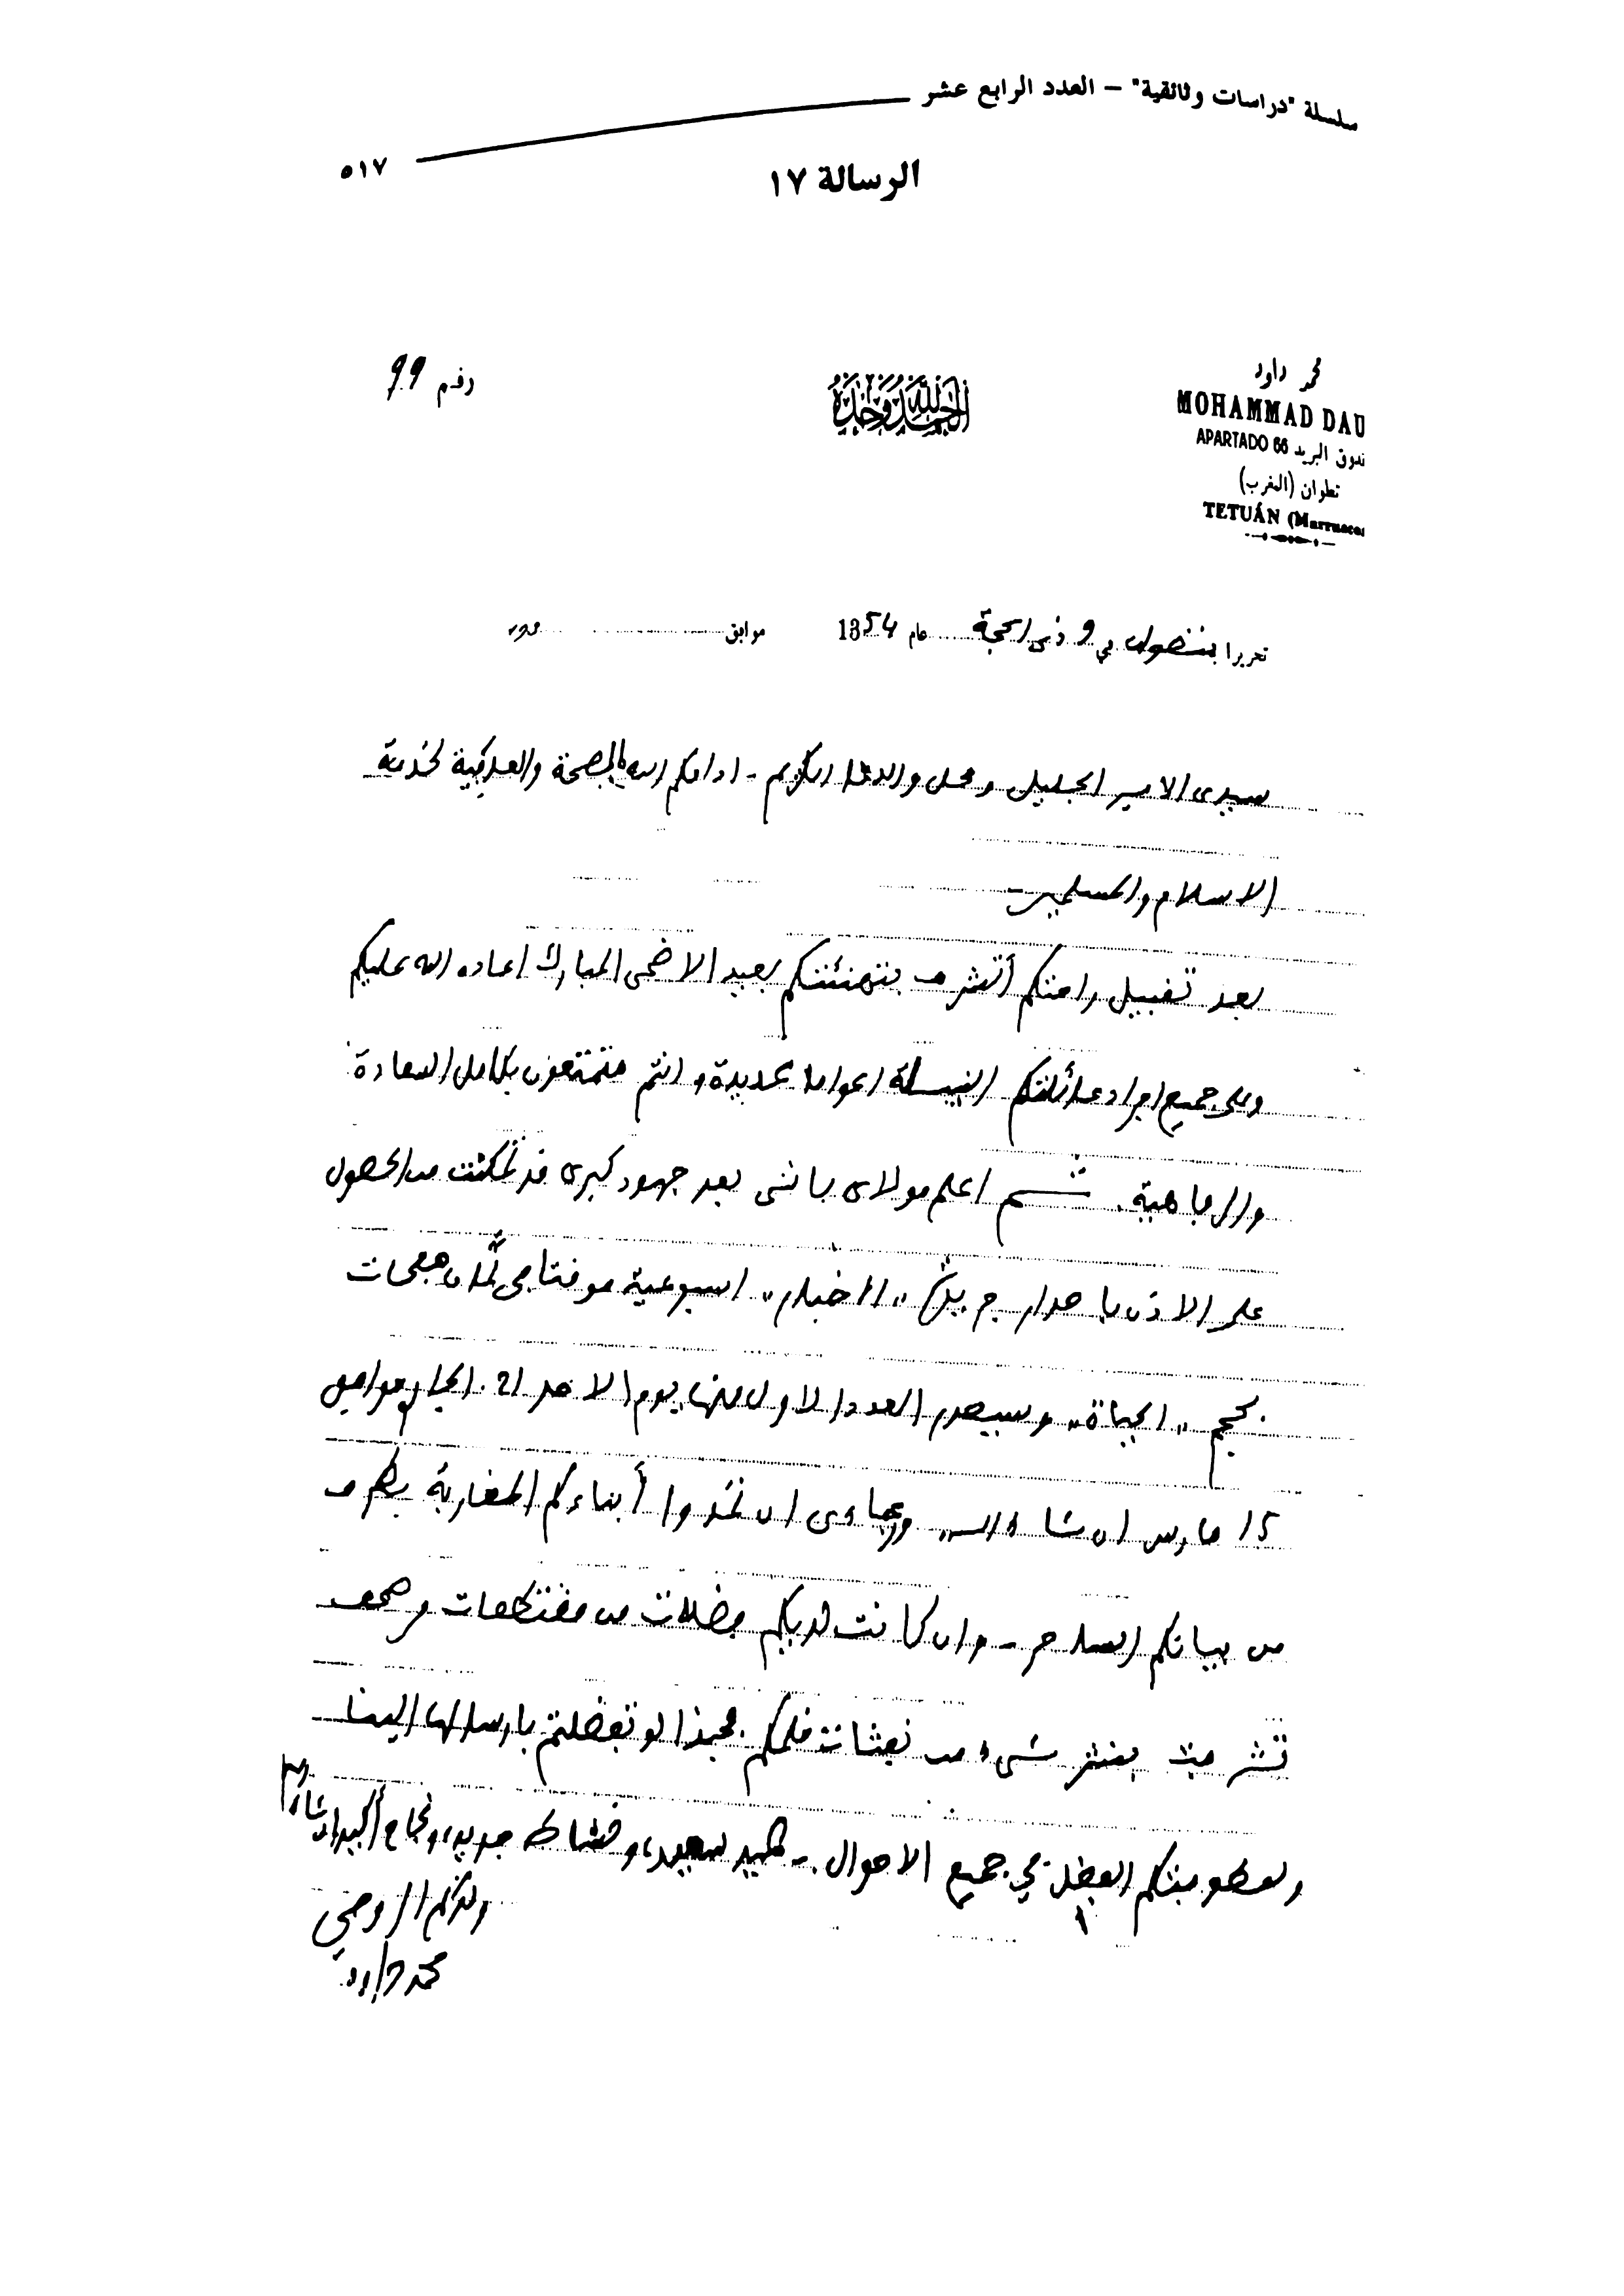 سلسلة "دراسات وثائقية" – العدد الرابع عشر
٥١٧
الرسالة ١٧
محمد داود
MOHAMMAD DAU
ندوق البريد APARTADO 66
تطوان (المغرب)
TETUÁN (Marruecos
الحمد لله وحده
رقم 99
تحريرا بتطوان في 9 ذي الحجة عام 1354 موافق
سيدي الامير الجليل ومحل والدنا الكريم - ادامكم الله بالصحة والعافية لخدمة
الاسلام والمسلمين
بعد تقبيل راحتكم أتشرف بتهنئتكم بعيد الاضحى المبارك اعاده الله عليكم
وعلى جميع افراد عائلتكم النبيلة اعواما عديدة وانتم متمتعون بكامل السعادة
والرفاهية. ثم اعلم مولاي بانني بعد جهود كبرى قد تمكنت من الحصول
على الاذن باصدار جريدة "الاخبار" اسبوعية موقتا في ثمان صفحات
بحجم "الحياة" وسيصدر العدد الاول منها يوم الاحد 21 الجاري موافق
15 مارس ان شاء الله ورجاءي ان تمدوا أبناءكم المغاربة بطرف
من بياتكم الساحر - وان كانت لديكم فضلات من مقتطفات وصحف
تشرفت بنشر شيء من نفثات قلمكم فحبذا لو تفضلتم بارسالها الينا
ولعطوفتكم الفضل في جميع الاحوال. - عيد سعيد، ونشاط جديد، ونجاح أكيد ان شاء الله
ولدكم الروحي
محمد داود